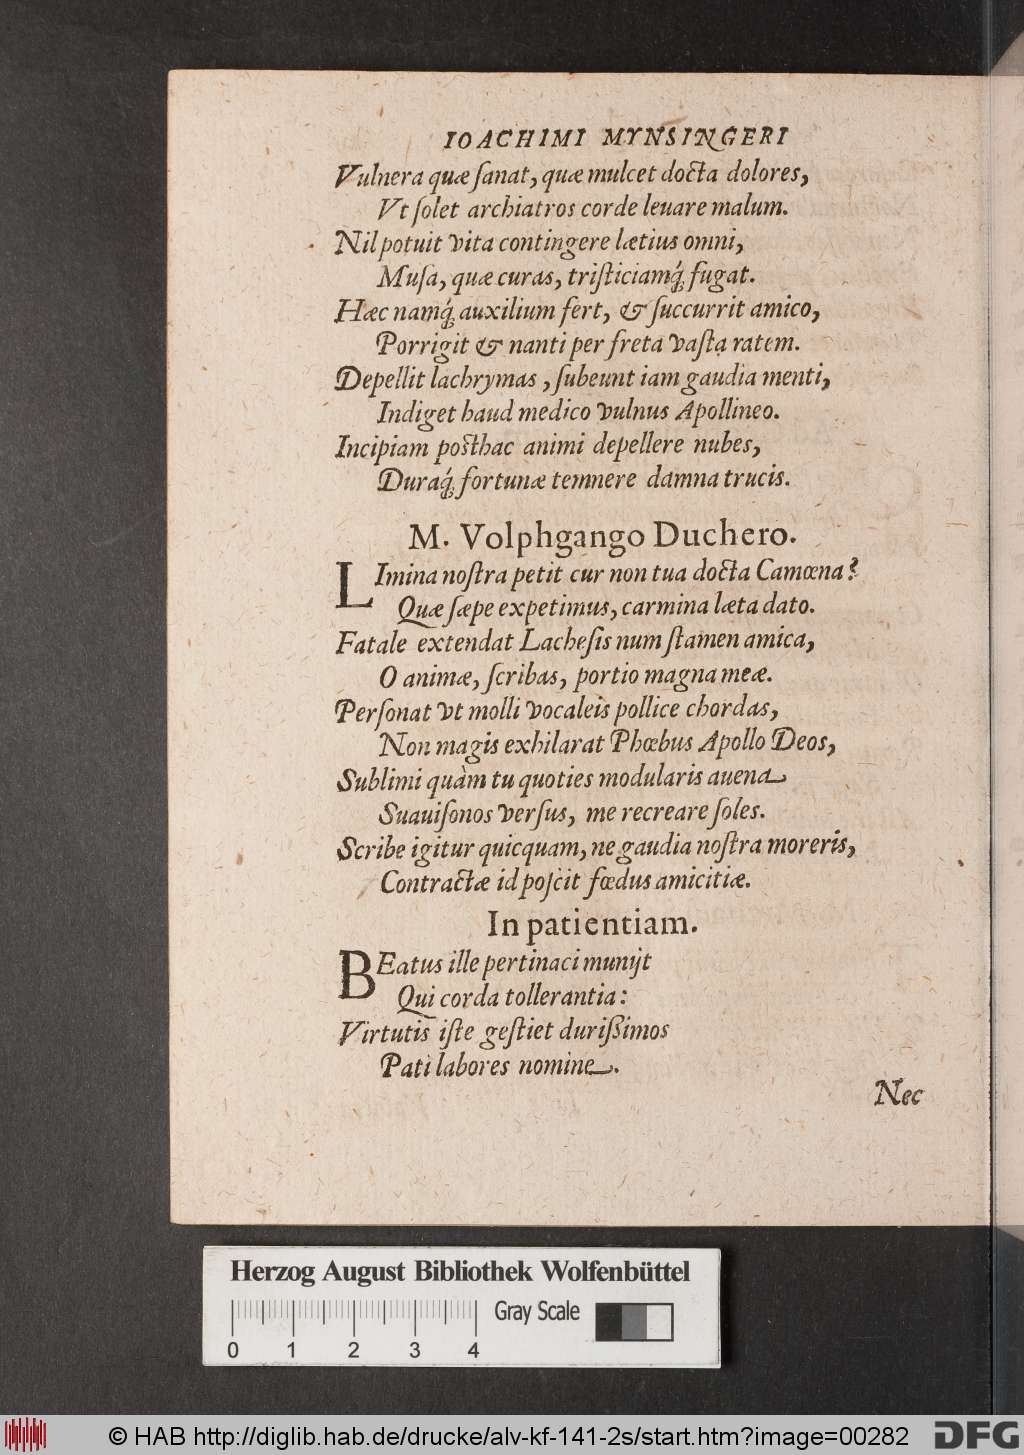 IOACHIMI MYNSINGERI
Vulnera quæ ſanat, quæ mulcet docta dolores,
Vt ſolet archiatros corde leuare malum.
Nil potuit vita contingere lætius omni,
Muſa, quæ curas, triſticiamq́; fugat.
Hæc namq́; auxilium fert, & ſuccurrit amico,
Porrigit & nanti per freta vaſta ratem.
Depellit lachrymas, ſubeunt iam gaudia menti,
Indiget haud medico vulnus Apollineo.
Incipiam poſthac animi depellere nubes,
Duraq́; fortunæ temnere damna trucis.
M. Volphgango Duchero.
LImina noſtra petit cur non tua docta Camœna?
Quæ ſæpe expetimus, carmina læta dato.
Fatale extendat Lacheſis num ſtamen amica,
O animæ, ſcribas, portio magna meæ.
Perſonat vt molli vocaleis pollice chordas,
Non magis exhilarat Phœbus Apollo Deos,
Sublimi quàm tu quoties modularis auena
Suauiſonos verſus, me recreare ſoles.
Scribe igitur quicquam, ne gaudia noſtra moreris,
Contractæ id poſcit fœdus amicitiæ.
In patientiam.
BEatus ille pertinaci munijt
Qui corda tollerantia:
Virtutis iſte geſtiet durißimos
Pati labores nomine.
Nec
Herzog August Bibliothek Wolfenbüttel
Gray Scale
0 1 2 3 4
© HAB http://diglib.hab.de/drucke/alv-kf-141-2s/start.htm?image=00282
DFG